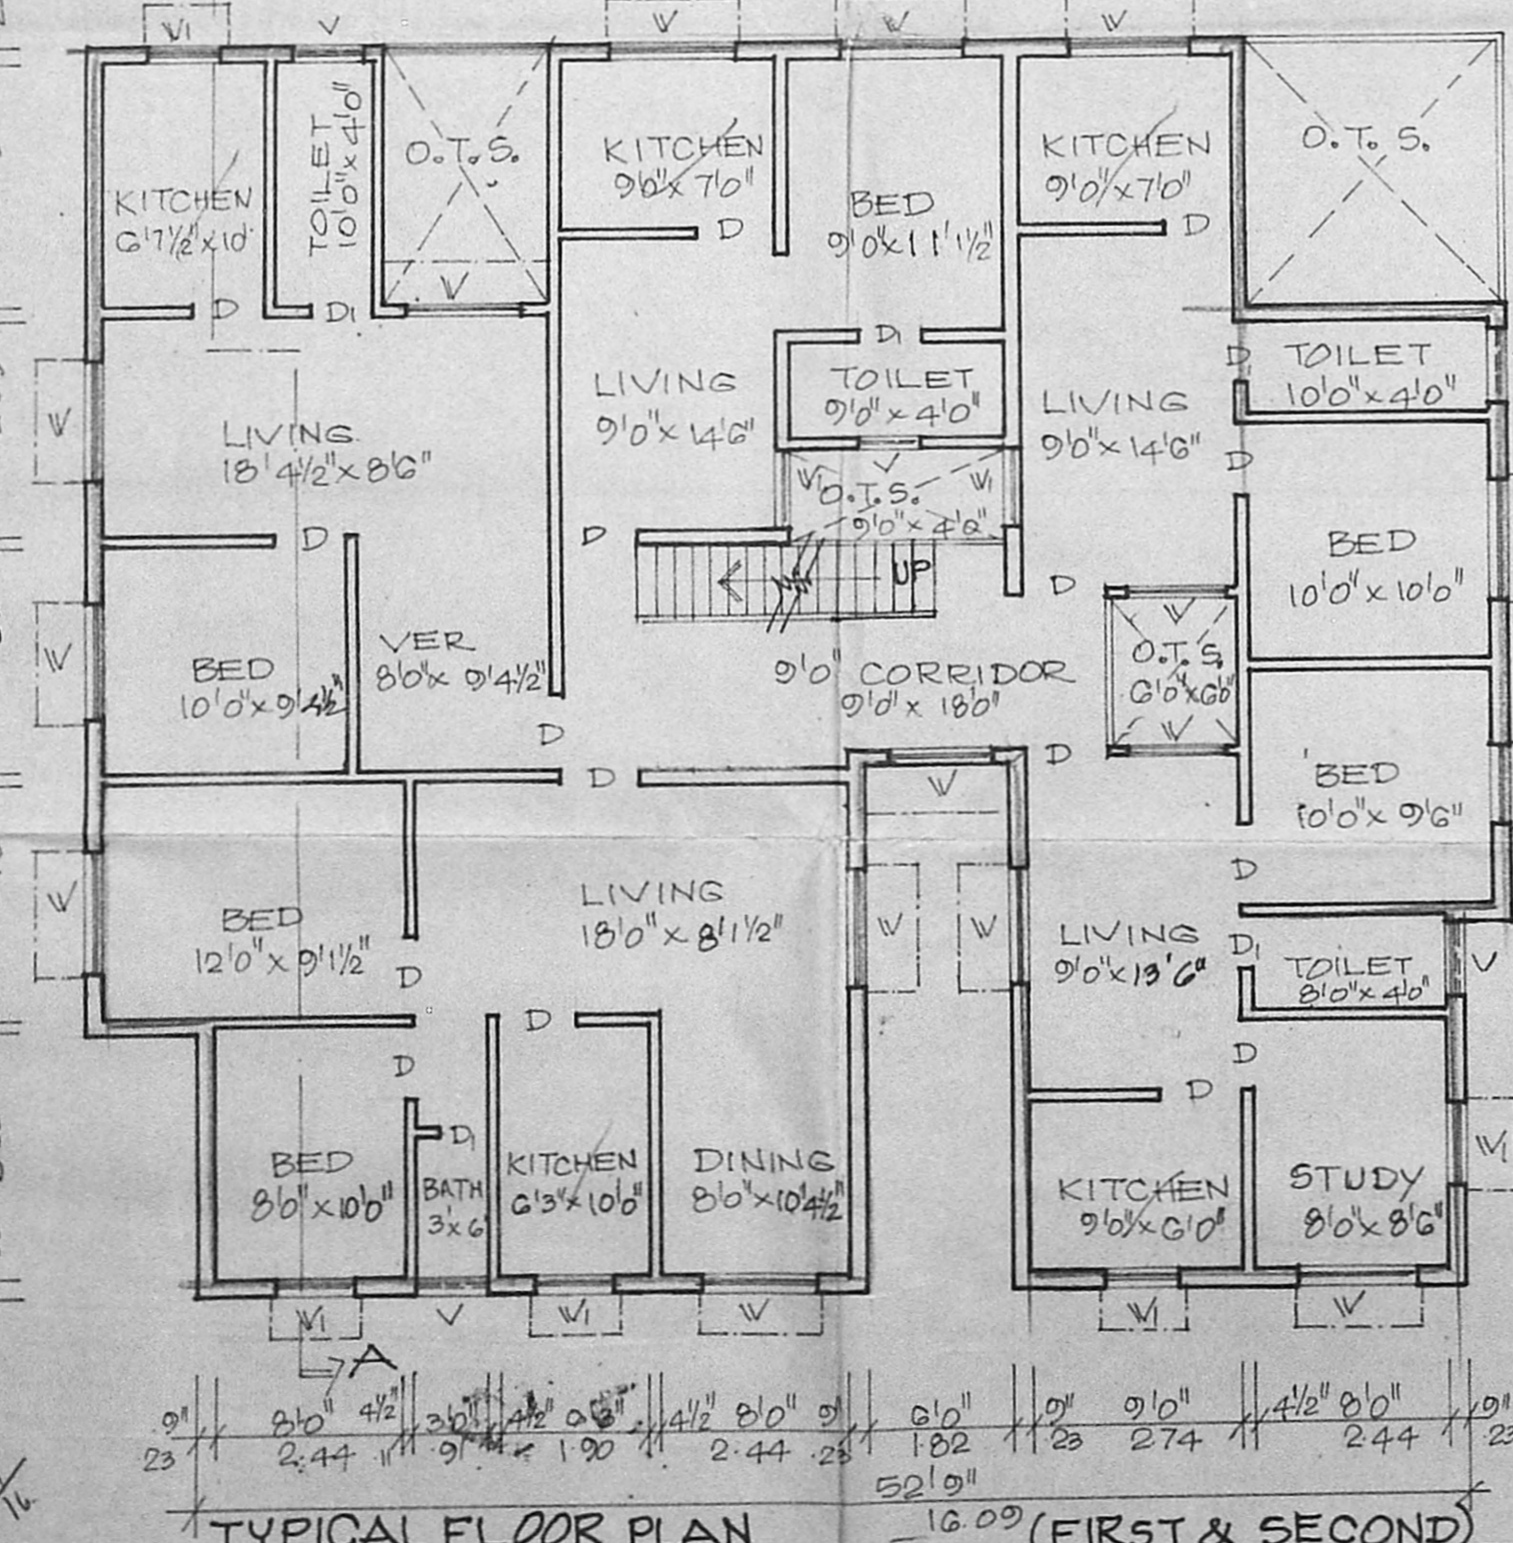 W1
V
W
V
W
KITCHEN
6'7½"x10'
TOILET
10'0"x4'0"
O.T.S.
V
KITCHEN
9'0"x7'0"
D
BED
9'0"x11'1½"
KITCHEN
9'0"x7'0"
D
O.T.S.
D
D1
D1
D1
TOILET
10'0"x4'0"
W
LIVING
18'4½"x8'6"
LIVING
9'0"x14'6"
TOILET
9'0"x4'0"
LIVING
9'0"x14'6"
D
W1
V
W1
O.T.S.
9'0"x4'0"
D
D
UP
D
BED
10'0"x10'0"
W
BED
10'0"x9'4½"
VER
8'0"x9'4½"
9'0" CORRIDOR
9'0"x18'0"
W
O.T.S.
6'0"x6'0"
W
D
D
D
W
BED
10'0"x9'6"
W
BED
12'0"x9'1½"
D
LIVING
18'0"x8'1½"
W
W
LIVING
9'0"x13'6"
D
D1
TOILET
8'0"x4'0"
V
D
D
D
D
BED
8'0"x10'0"
D1
BATH
3'x6'
KITCHEN
6'3"x10'0"
DINING
8'0"x10'4½"
KITCHEN
9'0"x6'0"
STUDY
8'0"x8'6"
W1
W1
V
W1
W
W1
W
A
9" 8'0" 4½" 3'0" 4½" 4½" 8'0" 9" 6'0" 9" 9'0" 4½" 8'0" 9"
23 2.44 11 .91 1.90 2.44 .23 1.82 23 2.74 2.44 23
52'9"
16.09
TYPICAL FLOOR PLAN (FIRST & SECOND)